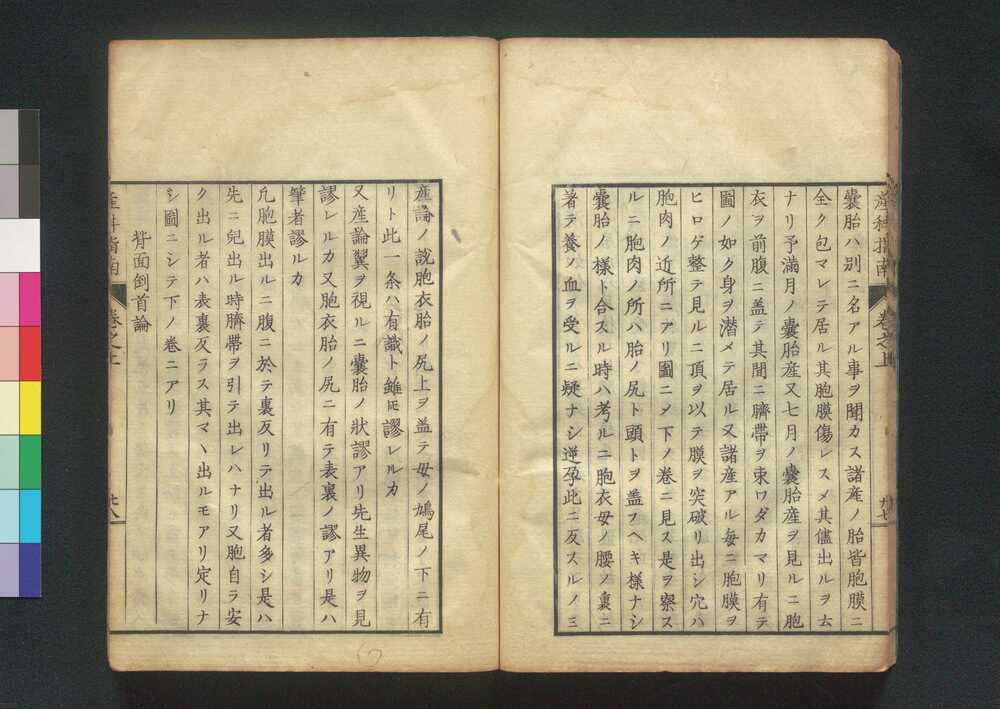 産科指南 卷之上 廿七
囊胎ハ別ニ名アル事ヲ聞カス諸産ノ胎皆胞膜ニ
全ク包マレテ居ル其胞膜傷レスメ其儘出ルヲ云
ナリ予滿月ノ囊胎産又七月ノ囊胎産ヲ見ルニ胞
衣ヲ前腹ニ蓋テ其間ニ臍帶ヲ束ワダカマリ有テ
圖ノ如ク身ヲ潜メテ居ル又諸産アル毎ニ胞膜ヲ
ヒロゲ整テ見ルニ頂ヲ以テ膜ヲ突破リ出シ穴ハ
胞肉ノ近所ニアリ圖ニメ下ノ卷ニ見ス是ヲ察ス
ルニ胞肉ノ所ハ胎ノ尻ト頭トヲ蓋フヘキ樣ナシ
囊胎ノ樣ト合スル時ハ考ルニ胞衣母ノ腰ノ裏ニ
著テ養ノ血ヲ受ルニ疑ナシ逆孕此ニ反スルノミ
産論ノ説胞衣胎ノ尻上ヲ蓋テ母ノ鳩尾ノ下ニ有
リト此一条ハ有識ト雖モ謬レルカ
又産論翼ヲ視ルニ囊胎ノ狀謬アリ先生異物ヲ見
謬レルカ又胞衣胎ノ尻ニ有テ表裏ノ謬アリ是ハ
筆者謬ルカ
凢胞膜出ルニ腹ニ於テ裏反リテ出ル者多シ是ハ
先ニ兒出ル時臍帶ヲ引テ出レハナリ又胞自ラ安
ク出ル者ハ表裏反ラス其マヽ出ルモアリ定リナ
シ圖ニシテ下ノ卷ニアリ
背面倒首論
産科指南 卷之上 廿八